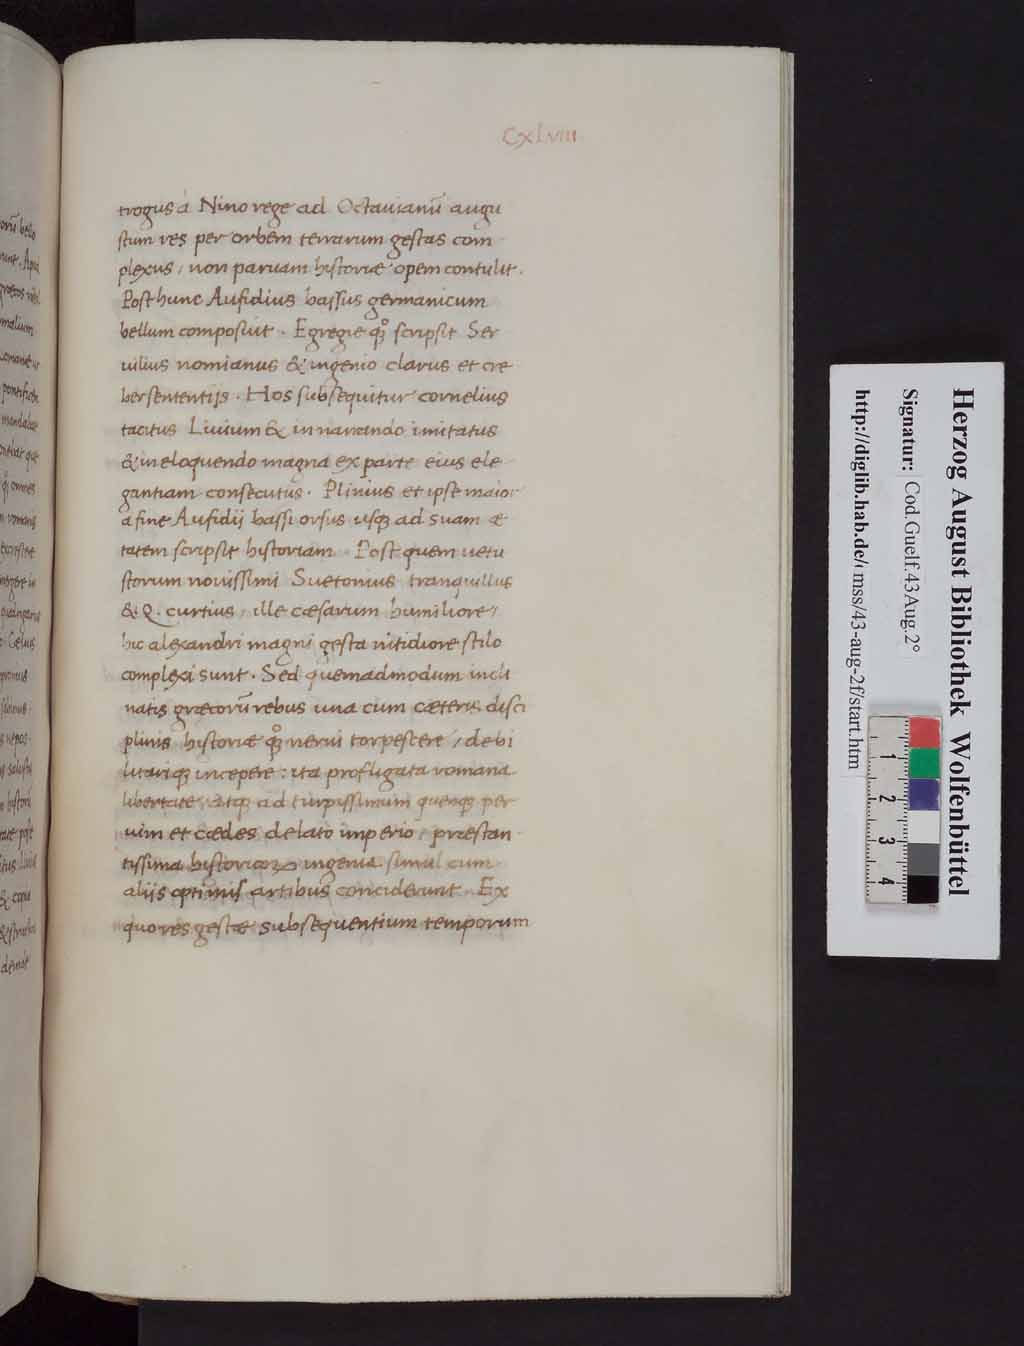 CXLVIII
trogus à Nino rege ad Octauianū augu
stum res per orbem terrarum gestas com
plexus, non paruam historiæ opem contulit.
Post hunc Aufidius bassus germanicum
bellum composuit. Egregie qꝫ° scripsit Ser
uilius nomianus & ingenio clarus et cre
ber sententijs. Hos subsequitur cornelius
tacitus Liuium & in narrando imitatus
& in eloquendo magna ex parte eius ele
gantiam consecutus. Plinius et ipse maior
a fine Aufidij bassi orsus usqꝫ ad suam æ
tatem scripsit historiam. Post quem uetu
storum nouissimi Suetonius tranquillus
& Q. curtius, ille cæsarum humiliore,
hic alexandri magni gesta nitidiore stilo
complexi sunt. Sed quemadmodum incli
natis græcorū rebus una cum cæteris disci
plinis historiæ qꝫ° nerui torpescere, debi
litariqꝫ incepere: ita profligata romana
libertate, atqꝫ ad turpissimum quenqꝫ per
uim et cædes delato imperio, præstan
tissima historicoꝝ ingenia simul cum
alijs optimis artibus conciderunt. Ex
quo res gestæ subsequentium temporum
Herzog August Bibliothek Wolfenbüttel
Signatur: Cod.Guelf.43 Aug.2°
http://diglib.hab.de/mss/43-aug-2f/start.htm
1
2
3
4